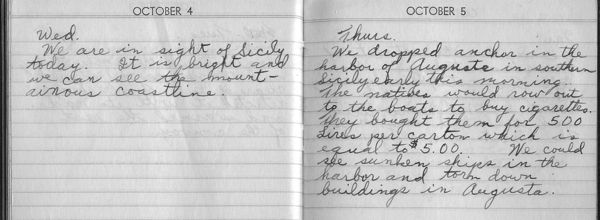 OCTOBER 4
Wed.
We are in sight of Sicily
today. It is bright and
we can see the mount-
ainous coastline.
OCTOBER 5
Thurs.
We dropped anchor in the
harbor of Augusta in southern
Sicily early this morning.
The natives would row out
to the boats to buy cigarettes.
They bought them for 500
Lires per carton which is
equal to $5.00. We could
see sunken ships in the
harbor and torn down
buildings in Augusta.